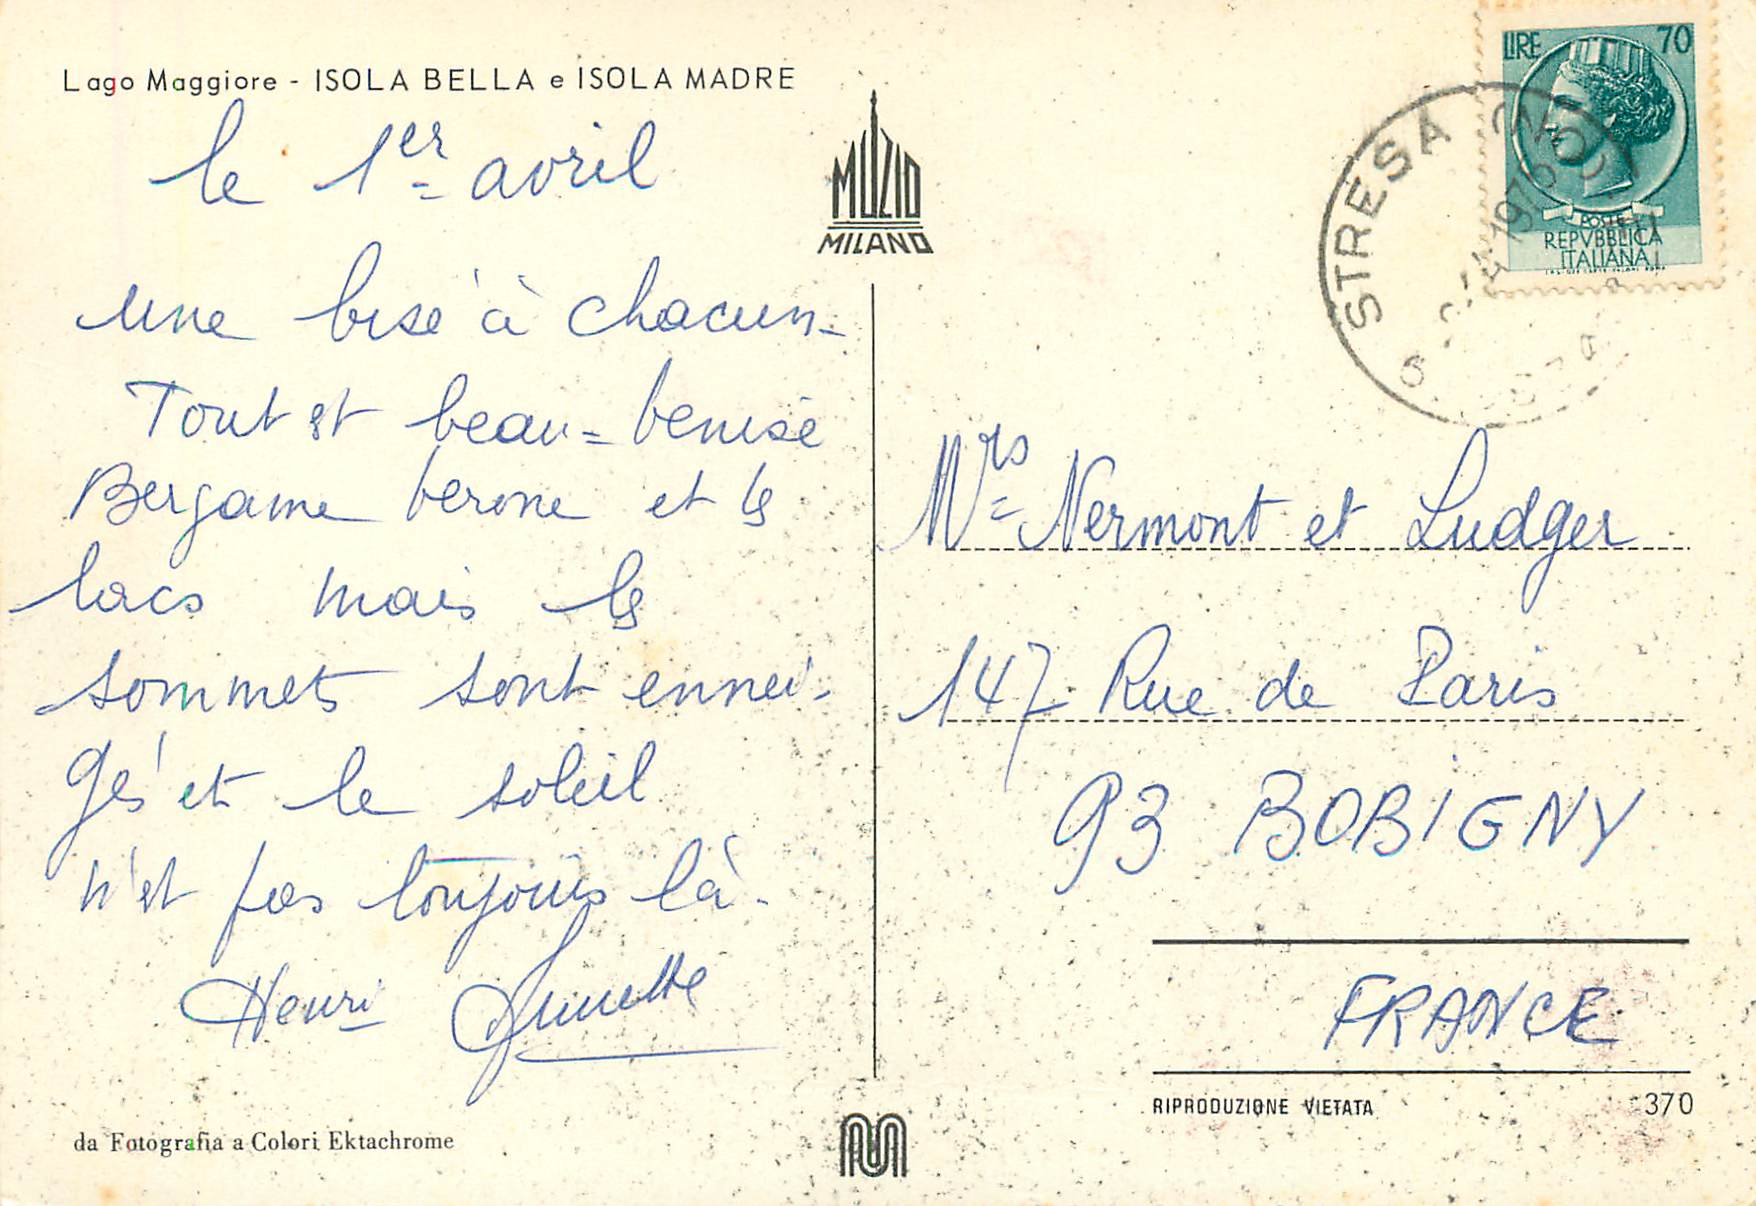 Lago Maggiore - ISOLA BELLA e ISOLA MADRE
le 1er avril
une bise à chacun-
Tout est beau = benise
Bergame verone et les
lacs mais les
sommets sont ennei-
gés et le soleil
n'est pas toujours là.
Henri
da Fotografia a Colori Ektachrome
MUZIO
MILANO
LIRE 70
POSTE
REPVBBLICA
ITALIANA
STRESA
1970
Mrs Nermont et Ludger
147 Rue de Paris
93 BOBIGNY
FRANCE
RIPRODUZIONE VIETATA
370